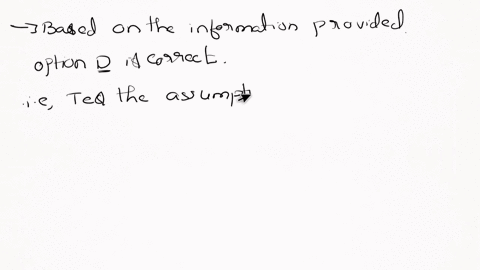 → Based on the information provided.
option D is correct.
i.e, the assumpt